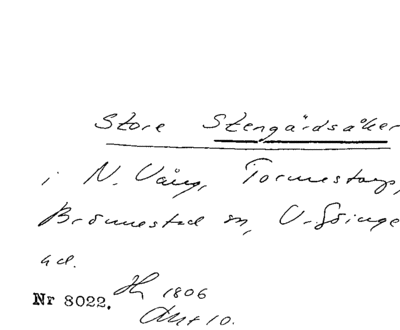 Store Stengårdsåker
i N. Vång, Tormestorp,
Brönnestad sn, V. Göinge
hd.
Nr 8022. Hy 1806
Akt 10.